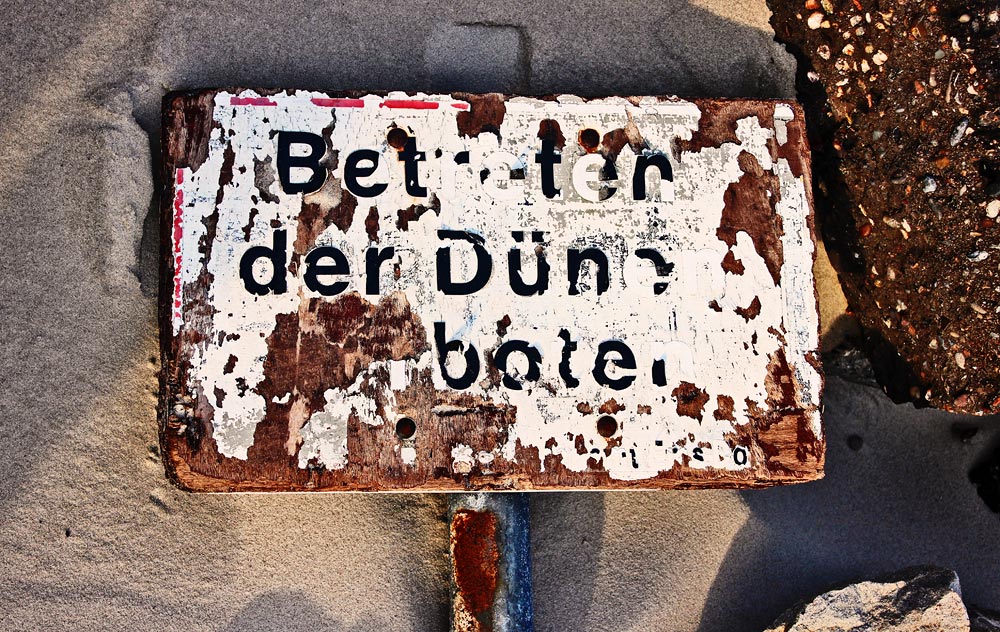 Betreten
der Dünen
boten